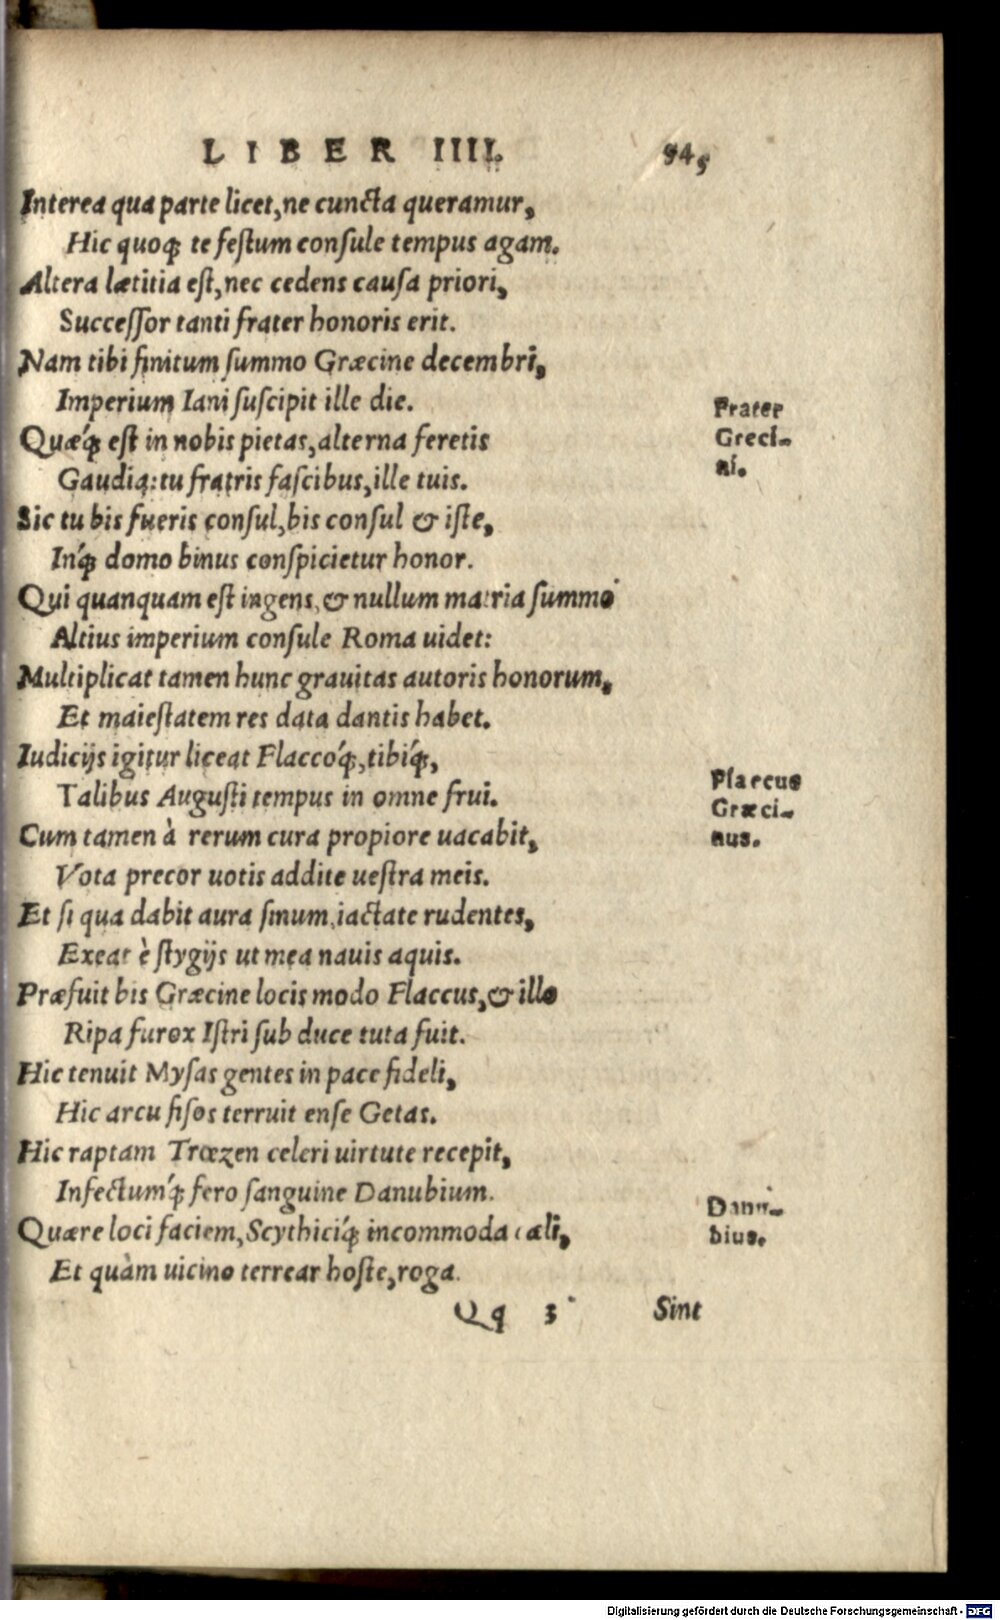 LIBER IIII. 945
Interea qua parte licet, ne cuncta queramur,
Hic quoq; te festum consule tempus agam.
Altera lætitia est, nec cedens causa priori,
Successor tanti frater honoris erit.
Nam tibi finitum summo Græcine decembri,
Imperium Iani suscipit ille die.
Quæq́; est in nobis pietas, alterna feretis
Gaudia: tu fratris fascibus, ille tuis.
Sic tu bis fueris consul, bis consul & iste,
Inq́; domo binus conspicietur honor.
Qui quanquam est ingens, & nullum matria summo
Altius imperium consule Roma uidet:
Multiplicat tamen hunc grauitas autoris honorum,
Et maiestatem res data dantis habet.
Iudicijs igitur liceat Flaccoq́;, tibiq́;,
Talibus Augusti tempus in omne frui.
Cum tamen à rerum cura propiore uacabit,
Vota precor uotis addite uestra meis.
Et si qua dabit aura sinum, iactate rudentes,
Exeat è stygijs ut mea nauis aquis.
Præfuit bis Græcine locis modo Flaccus, & illo
Ripa furox Istri sub duce tuta fuit.
Hic tenuit Mysas gentes in pace fideli,
Hic arcu fisos terruit ense Getas.
Hic raptam Trœzen celeri uirtute recepit,
Infectumq́; fero sanguine Danubium.
Quære loci faciem, Scythiciq́; incommoda cæli,
Et quàm uicino terrear hoste, roga.
Qq 3 Sint
Frater
Greci-
ni.
Flaccus
Græci-
nus.
Danu-
bius.
Digitalisierung gefördert durch die Deutsche Forschungsgemeinschaft - DFG